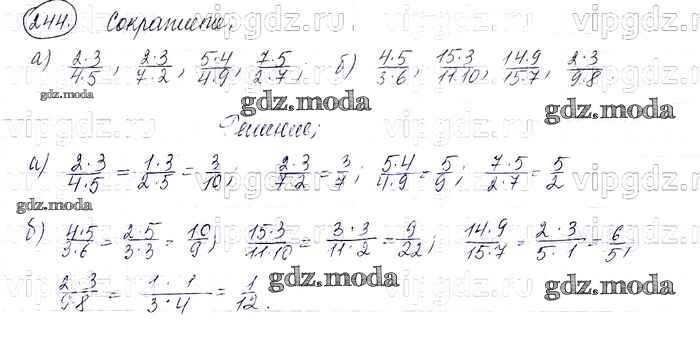 244. Сократите:
а) 2·3/4·5, 2·3/7·2, 5·4/4·9, 7·5/2·7; б) 4·5/3·6, 15·3/11·10, 14·9/15·7, 2·3/9·8.
gdz.moda gdz.moda gdz.moda
Решение;
а) 2·3/4·5 = 1·3/2·5 = 3/10; 2·3/7·2 = 3/7; 5·4/4·9 = 5/9; 7·5/2·7 = 5/2
gdz.moda gdz.moda
б) 4·5/3·6 = 2·5/3·3 = 10/9; 15·3/11·10 = 3·3/11·2 = 9/22; 14·9/15·7 = 2·3/5·1 = 6/5,
2·3/9·8 = 1·1/3·4 = 1/12.
gdz.moda gdz.moda